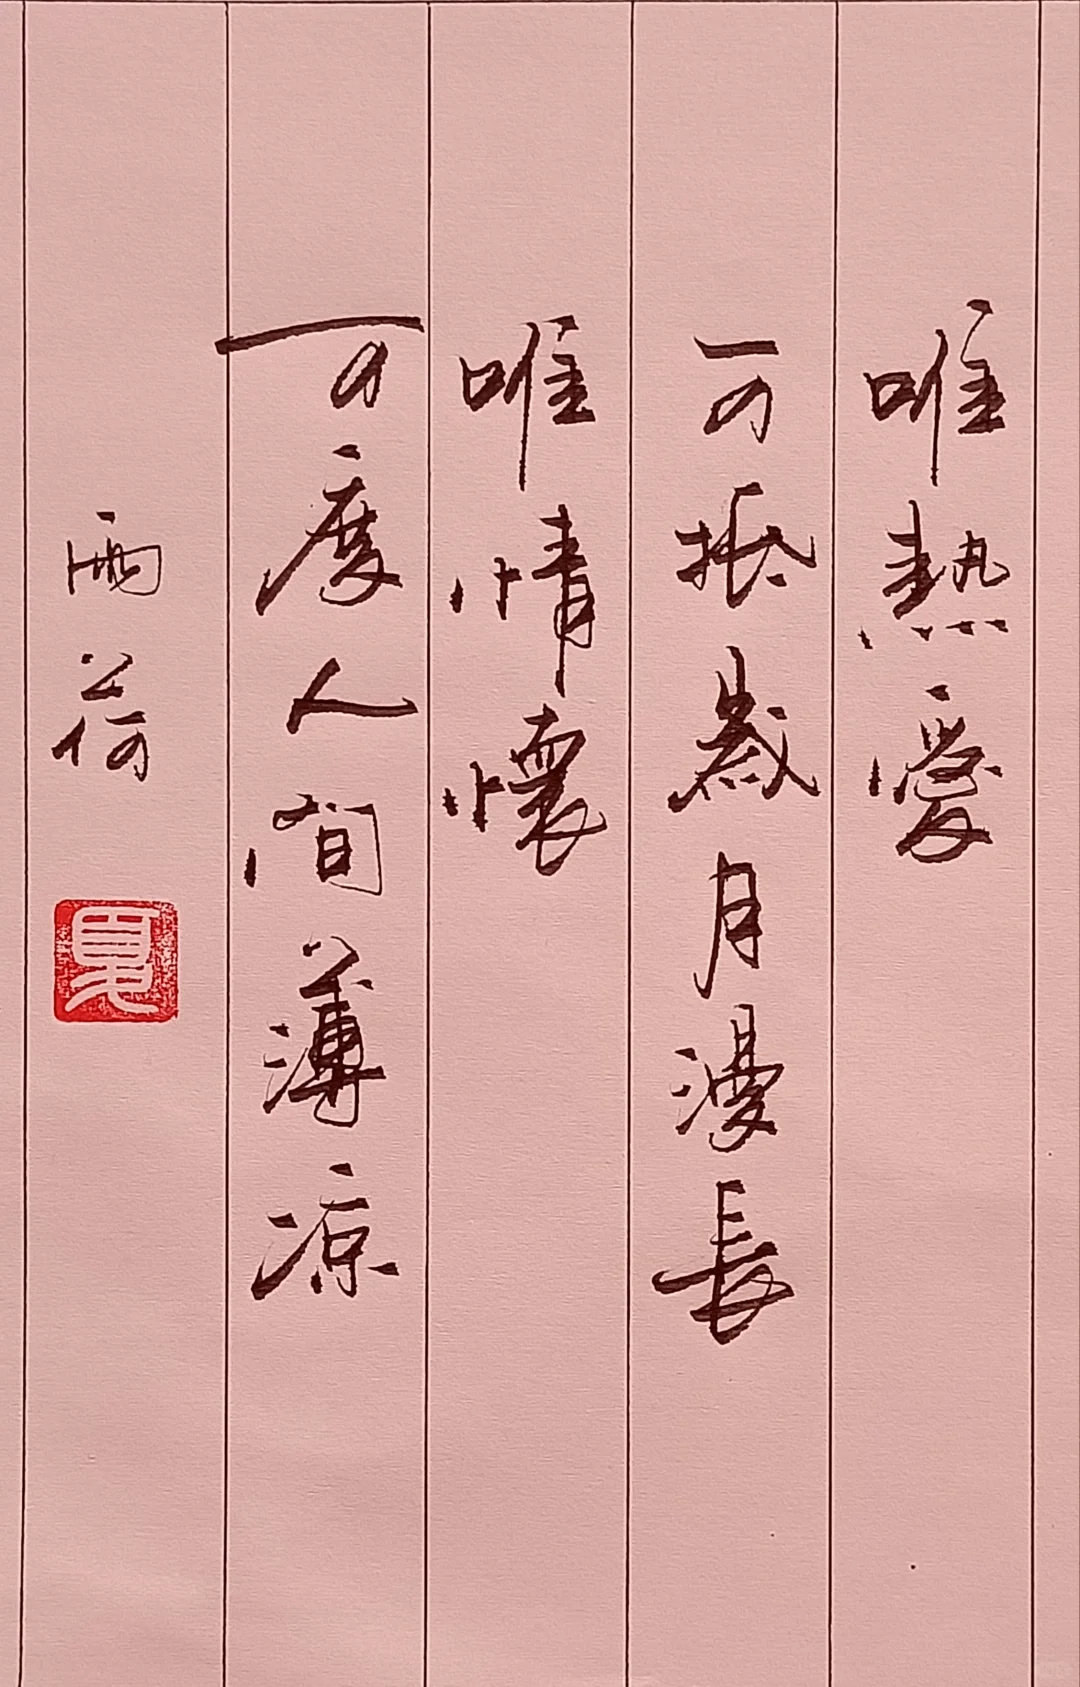 唯熱愛
可抵歲月漫長
唯情懷
可度人间薄凉
雨荷
夏